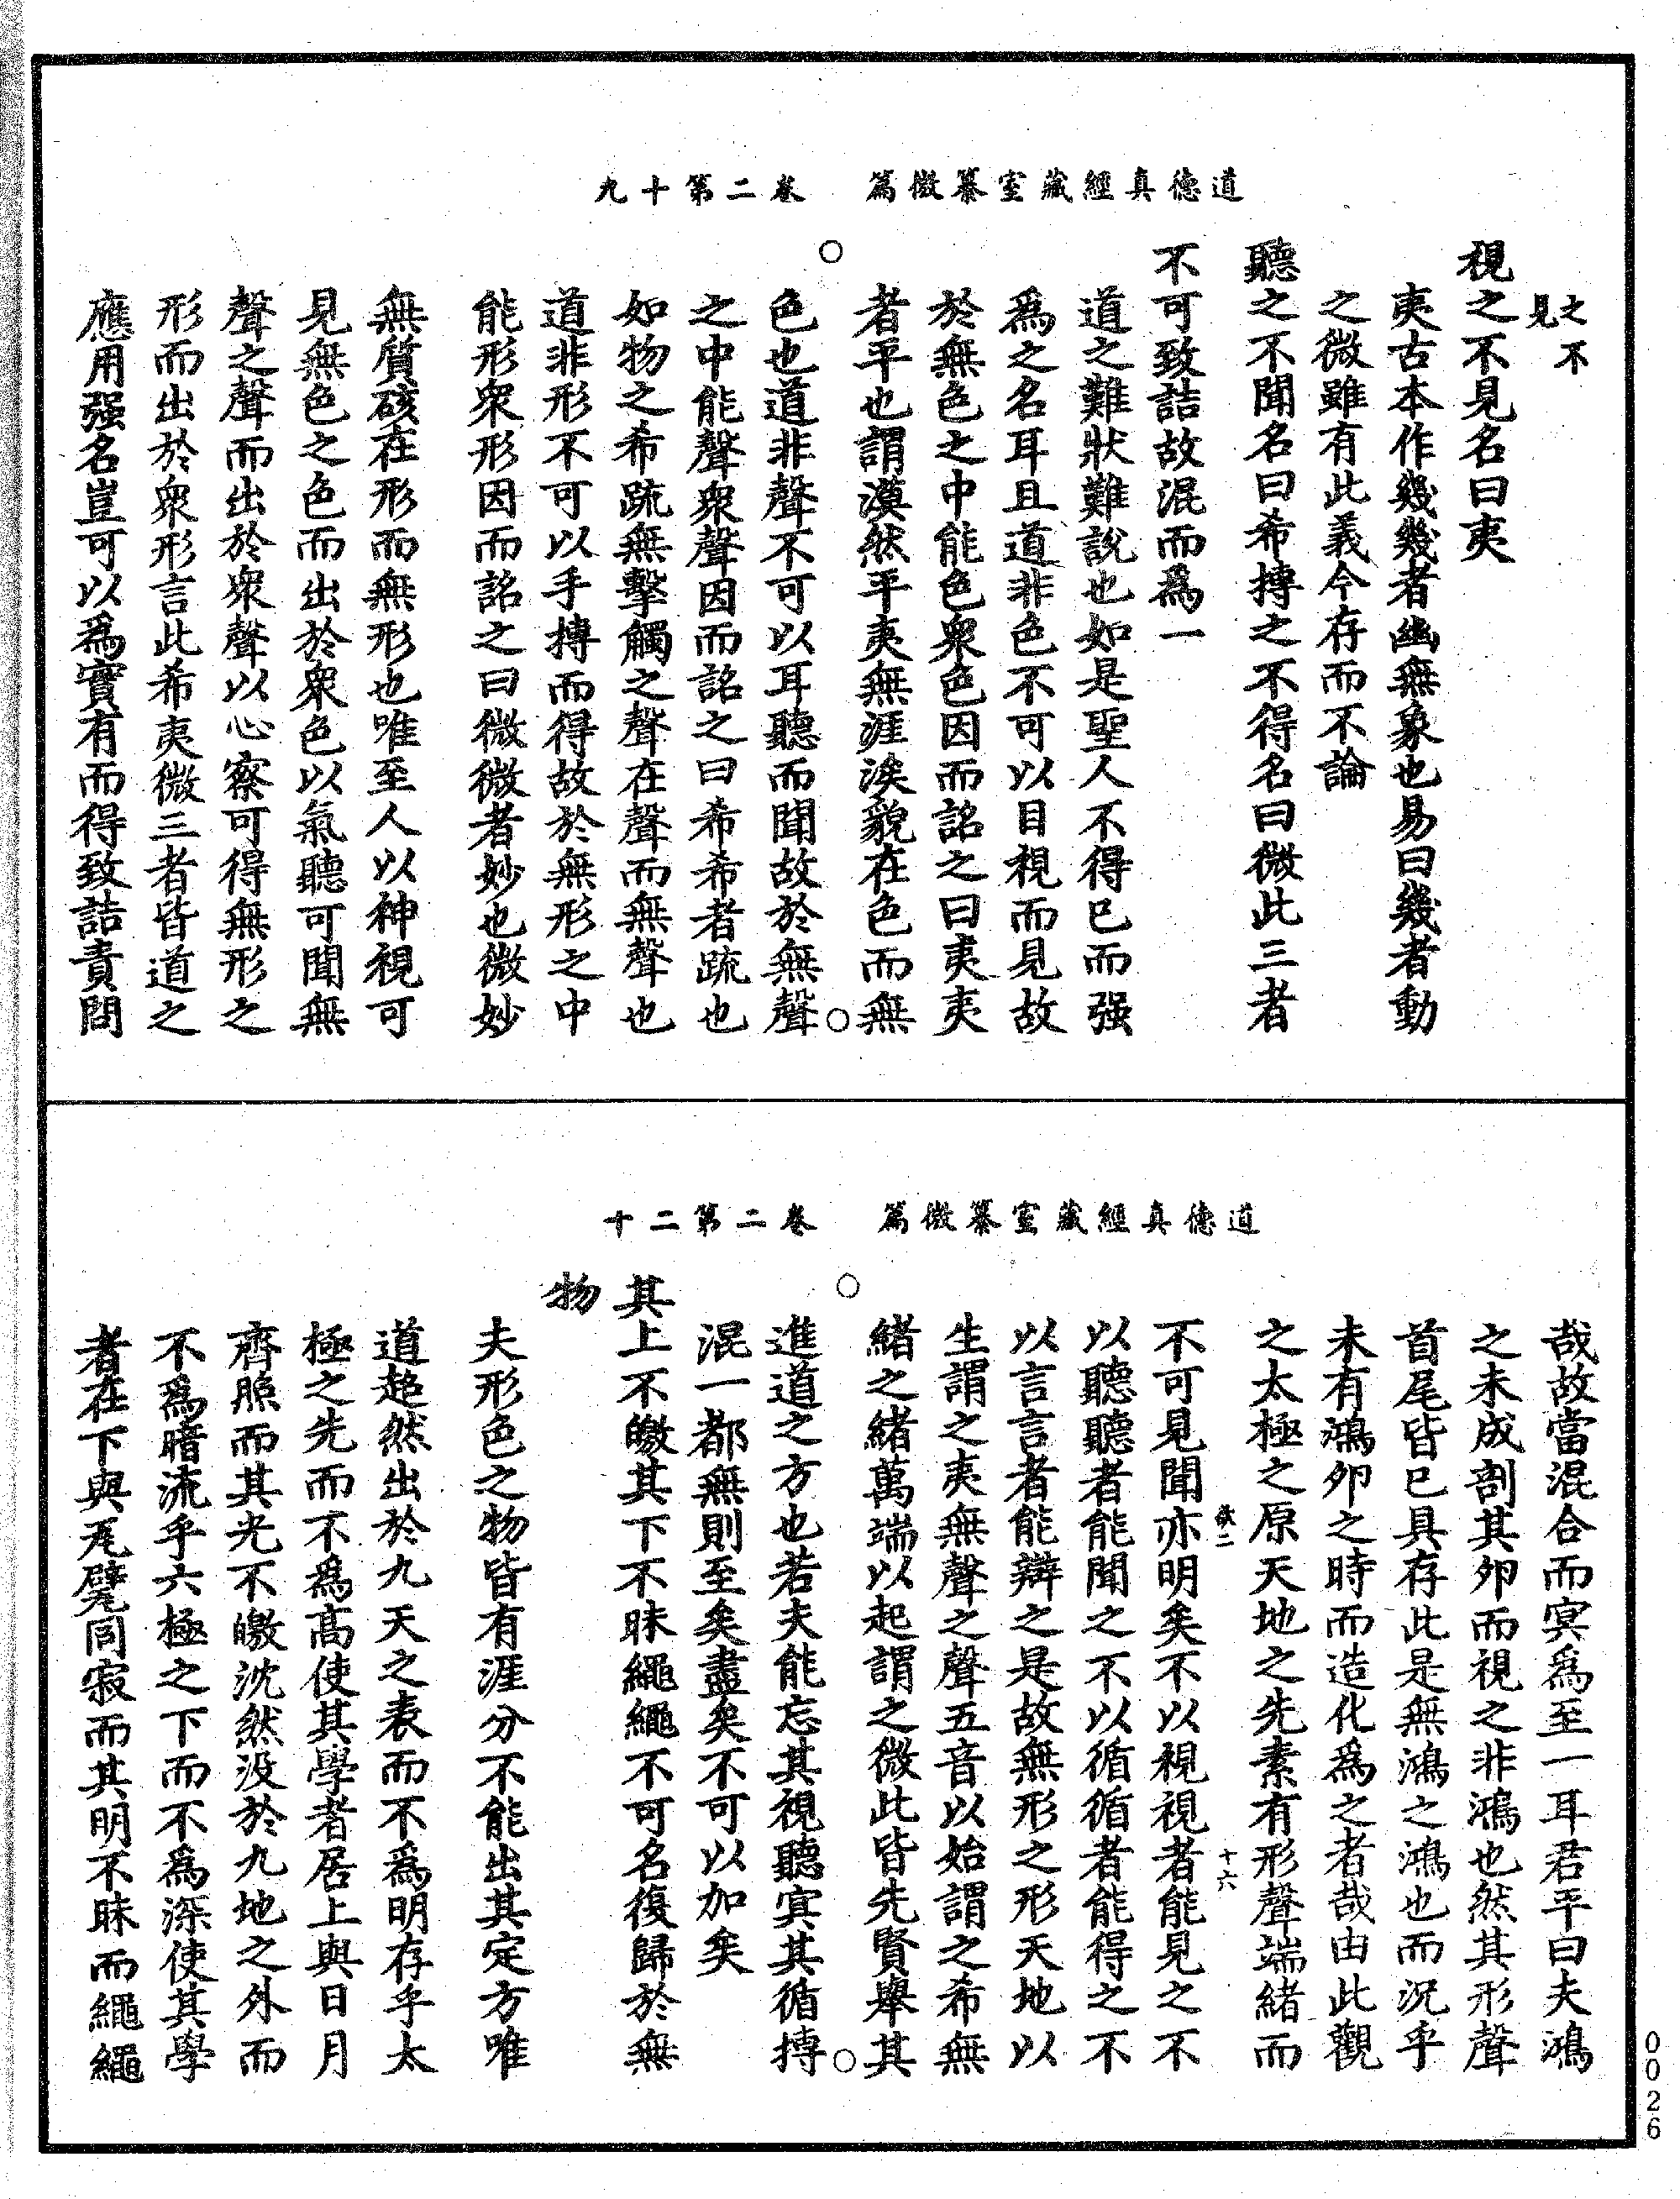 道德真經藏室纂微篇　卷二第十九
之不
見
視之不見名曰夷
夷古本作幾幾者幽無象也易曰幾者動
之微雖有此義今存而不論
聽之不聞名曰希摶之不得名曰微此三者
不可致詰故混而爲一
道之難狀難說也如是聖人不得已而强
爲之名耳且道非色不可以目視而見故
於無色之中能色衆色因而詺之曰夷夷
者平也謂漠然平夷無涯涘貌在色而無
色也道非聲不可以耳聽而聞故於無聲
之中能聲衆聲因而詺之曰希希者疏也
如物之希疏無擊觸之聲在聲而無聲也
道非形不可以手摶而得故於無形之中
能形衆形因而詺之曰微微者妙也微妙
無質礙在形而無形也唯至人以神視可
見無色之色而出於衆色以氣聽可聞無
聲之聲而出於衆聲以心察可得無形之
形而出於衆形言此希夷微三者皆道之
應用强名豈可以爲實有而得致詰責問
道德真經藏室纂微篇　卷二第二十
哉故當混合而冥爲至一耳君平曰夫鴻
之未成剖其卵而視之非鴻也然其形聲
首尾皆已具存此是無鴻之鴻也而況乎
未有鴻卵之時而造化爲之者哉由此觀
之太極之原天地之先素有形聲端緒而
欲二　十六
不可見聞亦明矣不以視視者能見之不
以聽聽者能聞之不以循循者能得之不
以言言者能辯之是故無形之形天地以
生謂之夷無聲之聲五音以始謂之希無
緒之緒萬端以起謂之微此皆先賢舉其
進道之方也若夫能忘其視聽㝠其循摶
混一都無則至矣盡矣不可以加矣
其上不皦其下不昧繩繩不可名復歸於無
物
夫形色之物皆有涯分不能出其定方唯
道超然出於九天之表而不爲明存乎太
極之先而不爲高使其學者居上與日月
齊照而其光不皦沈然没於九地之外而
不爲暗流乎六極之下而不爲深使其學
者在下與瓦甓同寂而其明不昧而繩繩
0026